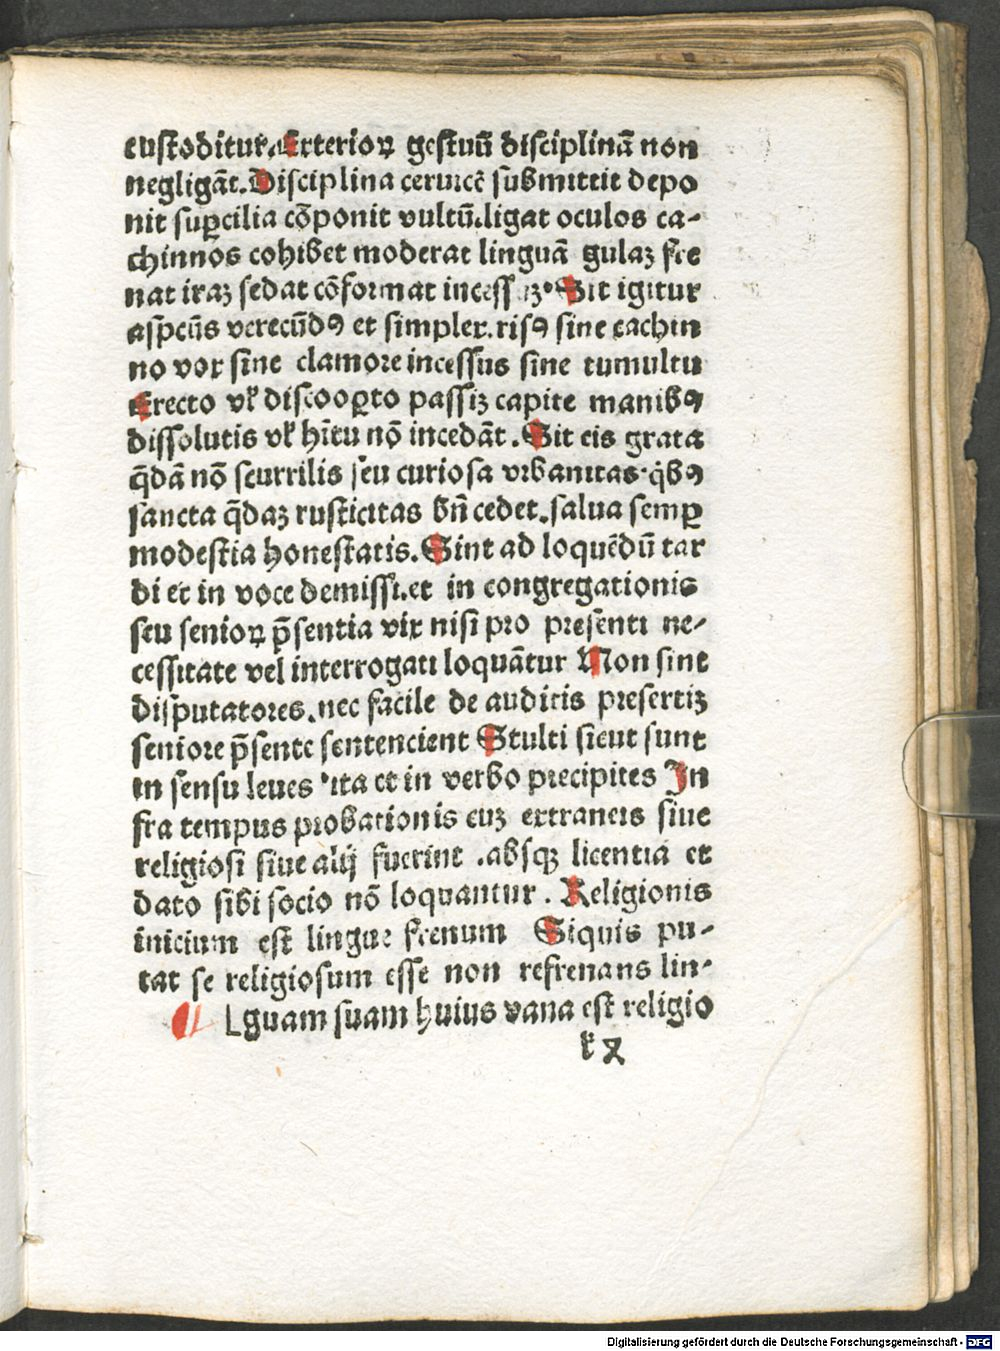 custoditur. Exterioꝝ gestuū disciplinā non
negligāt. Disciplina ceruicē submittit depo
nit suꝑcilia cōponit vultū. ligat oculos ca-
chinnos cohibet moderat linguā gulaꝫ fre
nat iraꝫ sedat cōformat Sit igitur
aspcūs verecūdꝰ et simplex. risꝰ sine cachin
no vox sine clamore incessus sine tumultu
Erecto vꝉ discooꝑto passiꝫ capite manibꝰ
dissolutis vꝉ hītu nō incedāt. Sit eis grata
q̄dā nō scurrilis seu curiosa vrbanitas. q̇bꝰ
sancta q̄daꝫ rusticitas bn̄ cedet. salua semꝑ
modestia honestatis. Sint ad loquēdū tar
di et in voce demissi. et in congregationis
seu senioꝝ p̄sentia vix nisi pro presenti ne-
cessitate vel interrogati loquātur Non sint
disputatores. nec facile de auditis presertiꝫ
seniore p̄sente sentencient Stulti sicut sunt
in sensu leues ita et in verbo precipites In
fra tempus probationis cuꝫ extraneis siue
religiosi siue alij fuerint. absqꝫ licentia et
dato sibi socio nō loquantur. Religionis
inicium est lingue frenum Siquis pu-
tat se religiosum esse non refrenans lin-
guam suam huius vana est religio
Digitalisierung gefördert durch die Deutsche Forschungsgemeinschaft - DFG